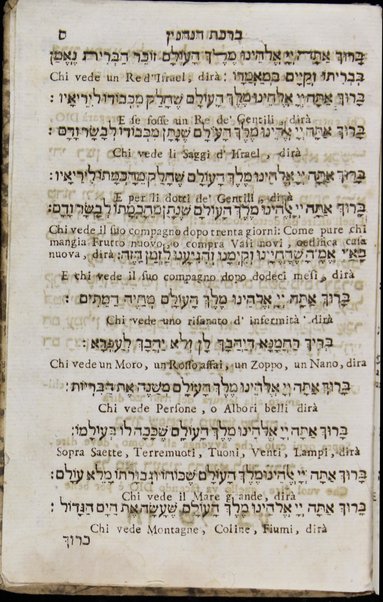 ברכת הנהנין ס
בָּרוּךְ אַתָּה יְיָ אֱלֹהֵינוּ מֶלֶךְ הָעוֹלָם זוֹכֵר הַבְּרִית נֶאֱמָן
בִּבְרִיתוֹ וְקַיָּים בְּמַאֲמָרוֹ :
Chi vede un Re d'Israel, dirà :
בָּרוּךְ אַתָּה יְיָ אֱלֹהֵינוּ מֶלֶךְ הָעוֹלָם שֶׁחָלַק מִכְּבוֹדוֹ לִירֵיאָיו :
E se fosse un Re de' Gentili, dirà
בָּרוּךְ אַתָּה יְיָ אֱלֹהֵינוּ מֶלֶךְ הָעוֹלָם שֶׁנָּתַן מִכְּבוֹדוֹ לְבָשָׂר וָדָם :
Chi vede li Saggi d'Israel, dirà
בָּרוּךְ אַתָּה יְיָ אֱלֹהֵינוּ מֶלֶךְ הָעוֹלָם שֶׁחָלַק מֵחָכְמָתוֹ לִירֵיאָיו :
E per li dotti de' Gentili, dirà
בָּרוּךְ אַתָּה יְיָ אֱלֹהֵינוּ מֶלֶךְ הָעוֹלָם שֶׁנָּתַן מֵחָכְמָתוֹ לְבָשָׂר וָדָם :
Chi vede il suo compagno dopo trenta giorni: Come pure chi
mangia Frutto nuovo, o compra Vasi novi, o edifica casa
nuova, dirà
בָּאֵ"י אֱמָ"ה שֶׁהֶחֱיָינוּ וְקִיְּמָנוּ וְהִגִּיעָנוּ לַזְּמַן הַזֶּה :
E chi vede il suo compagno dopo dodeci mesi, dirà
בָּרוּךְ אַתָּה יְיָ אֱלֹהֵינוּ מֶלֶךְ הָעוֹלָם מְחַיֵּה הַמֵּתִים :
Chi vede uno risanato d'infermità dirà
בְּרִיךְ רַחֲמָנָא דִּיהָבָךְ לָן וְלֹא יְהָבָךְ לְעַפְרָא :
Chi vede un Moro, un Rosso assai, un Zoppo, un Nano, dirà
בָּרוּךְ אַתָּה יְיָ אֱלֹהֵינוּ מֶלֶךְ הָעוֹלָם מְשַׁנֶּה אֶת הַבְּרִיּוֹת :
Chi vede Persone, o Albori belli dirà
בָּרוּךְ אַתָּה יְיָ אֱלֹהֵינוּ מֶלֶךְ הָעוֹלָם שֶׁכָּכָה לוֹ בְּעוֹלָמוֹ :
Sopra Saette, Terremuoti, Tuoni, Venti, Lampi, dirà
בָּרוּךְ אַתָּה יְיָ אֱלֹהֵינוּ מֶלֶךְ הָעוֹלָם שֶׁכּוֹחוֹ וּגְבוּרָתוֹ מָלֵא עוֹלָם :
Chi vede il Mare grande, dirà
בָּרוּךְ אַתָּה יְיָ אֱלֹהֵינוּ מֶלֶךְ הָעוֹלָם שֶׁעָשָׂה אֶת הַיָּם הַגָּדוֹל :
Chi vede Montagne, Coline, Fiumi, dirà
ברוך